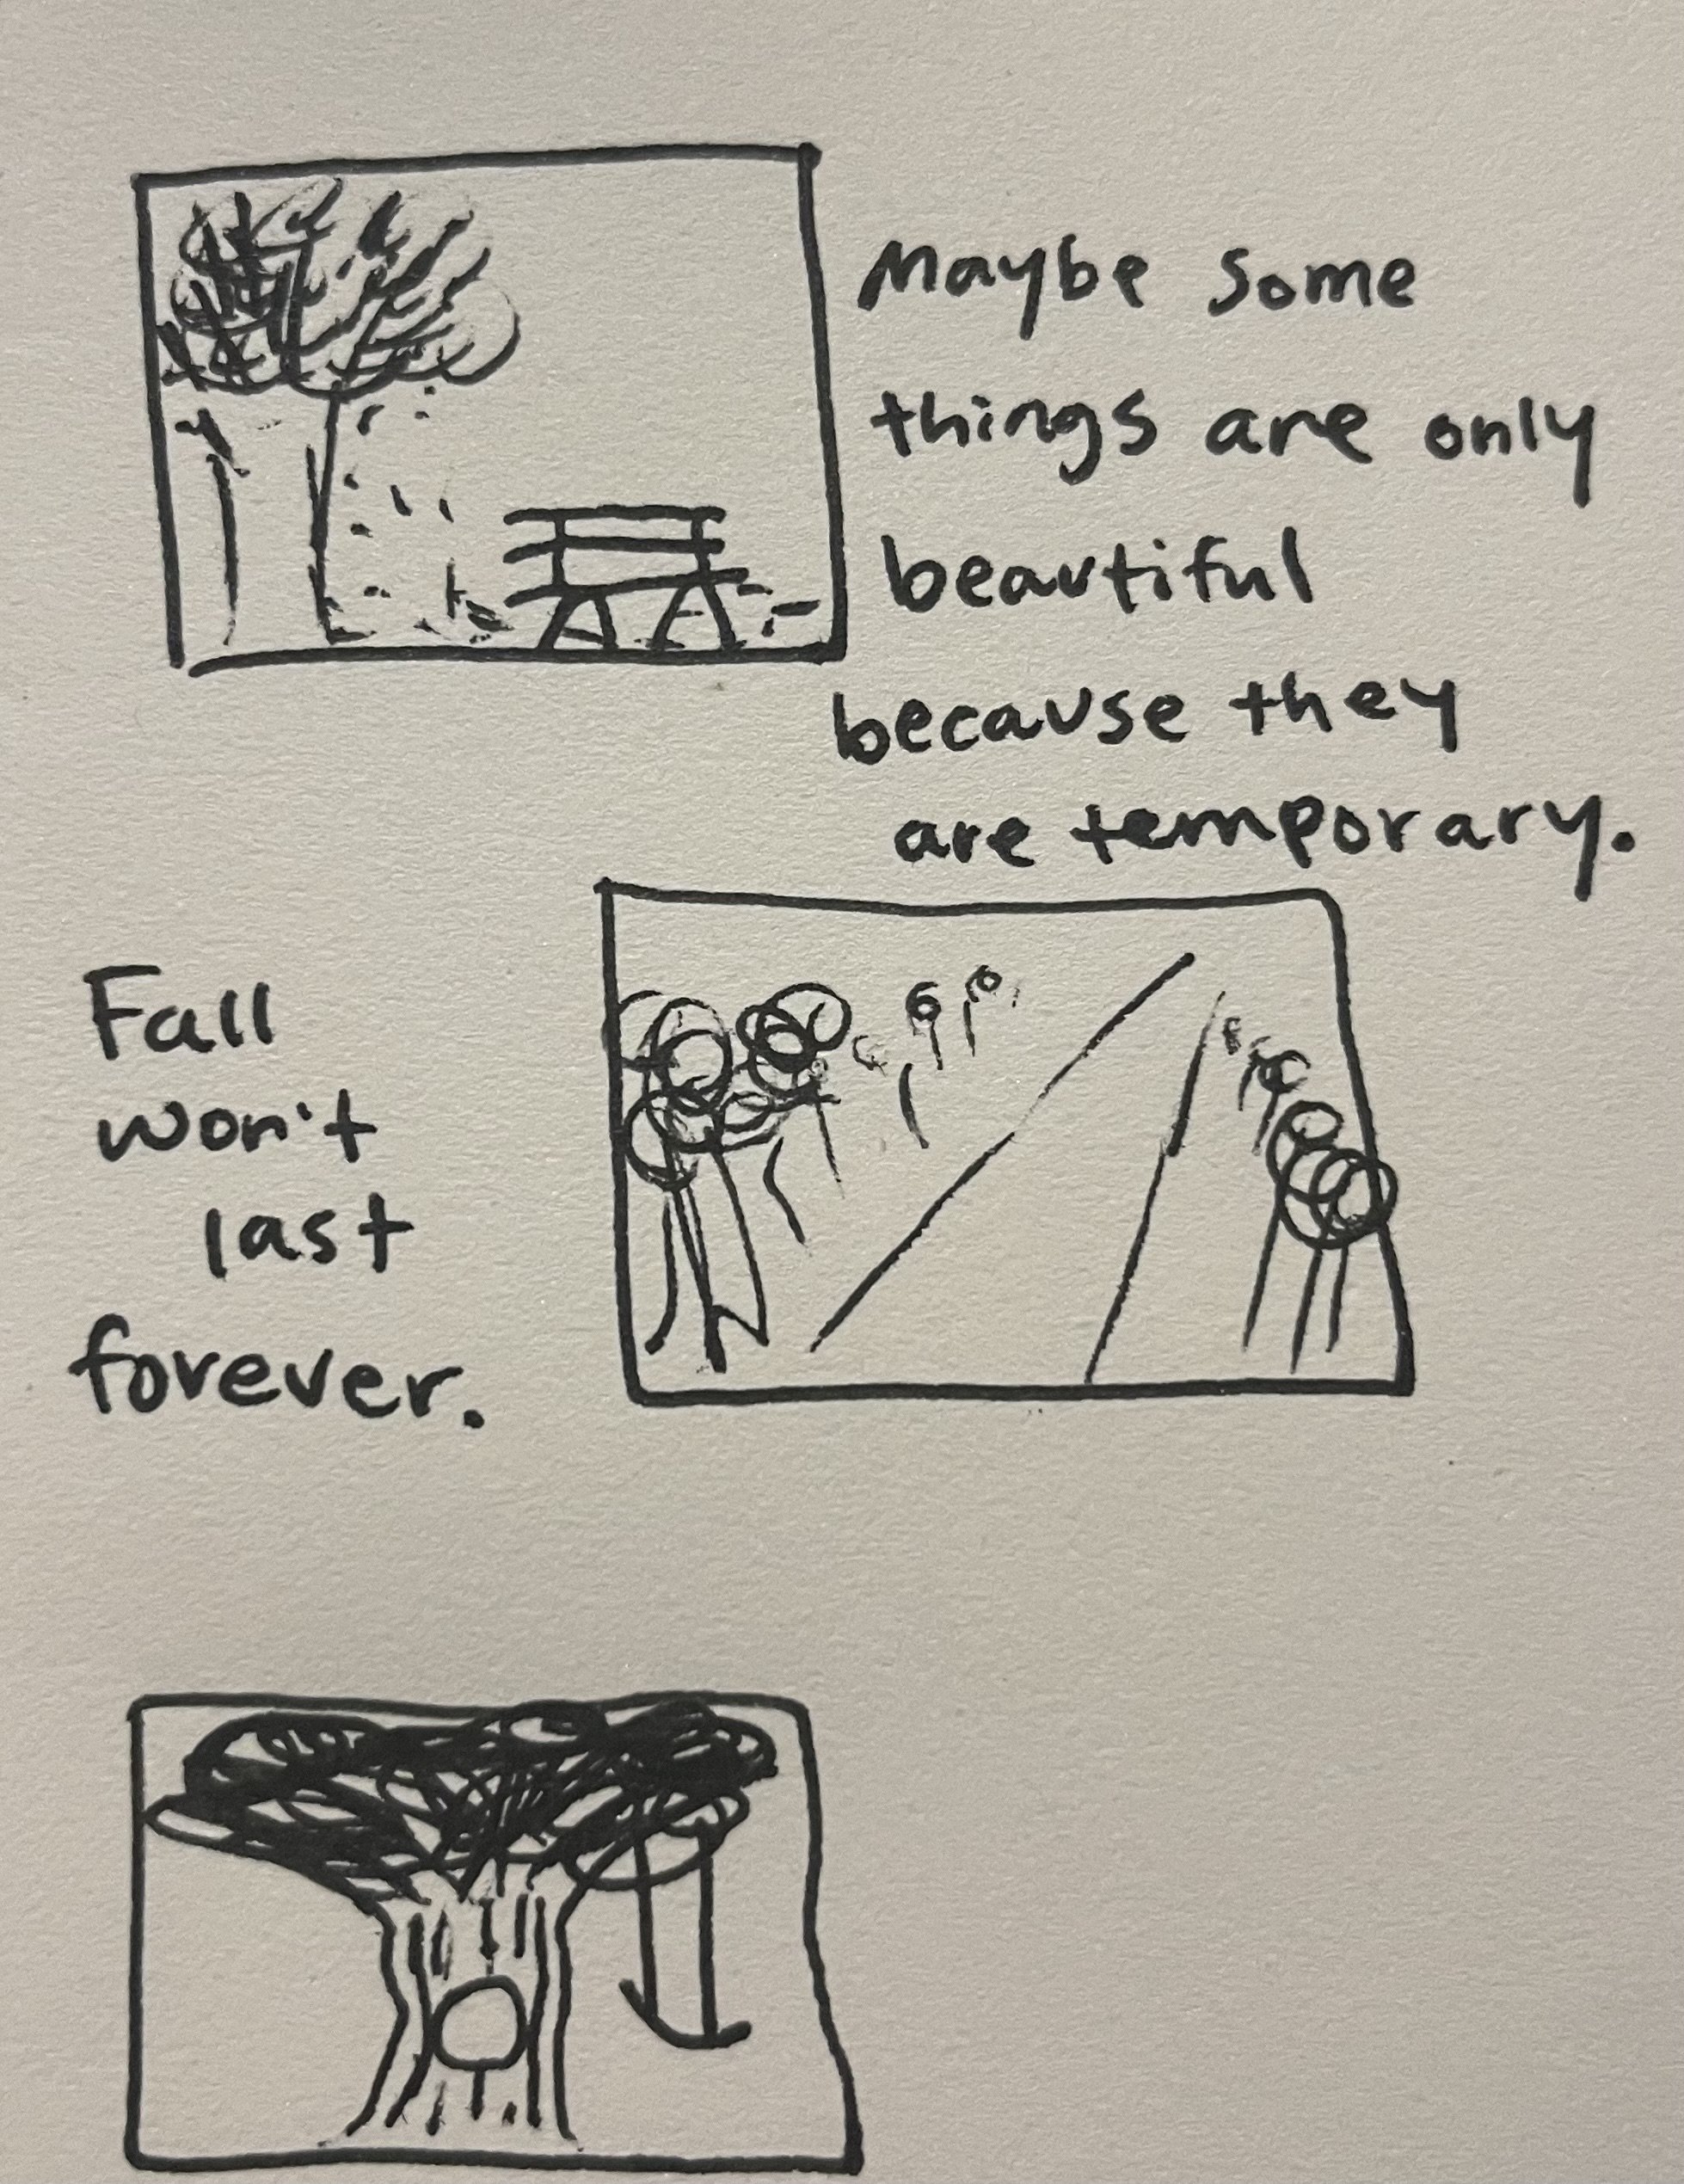 Maybe some
things are only
beautiful
because they
are temporary.
Fall
won't
last
forever.